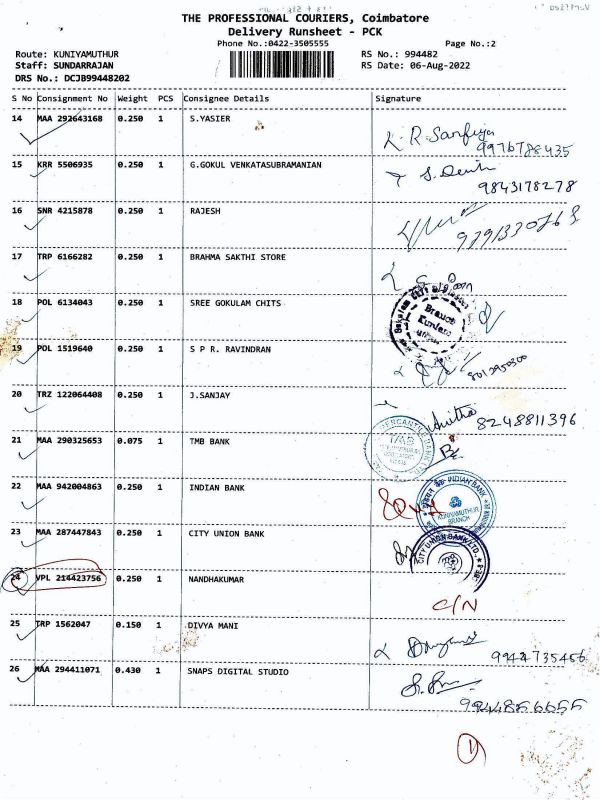 THE PROFESSIONAL COURIERS, Coimbatore
Delivery Runsheet - PCK
Phone No.:0422-3505555 Page No.:2
Route: KUNIYAMUTHUR RS No.: 994482
Staff: SUNDARRAJAN RS Date: 06-Aug-2022
DRS No.: DCJB99448202
S No Consignment No Weight PCS Consignee Details Signature
14 MAA 292643168 0.250 1 S.YASIER
9976788435
15 KRR 5506935 0.250 1 G.GOKUL VENKATASUBRAMANIAN
9843178278
16 SNR 4215878 0.250 1 RAJESH
17 TRP 6166282 0.250 1 BRAHMA SAKTHI STORE
18 POL 6134043 0.250 1 SREE GOKULAM CHITS
19 POL 1519640 0.250 1 S P R. RAVINDRAN
20 TRZ 122064408 0.250 1 J.SANJAY
Anitha 8248811396
21 MAA 290325653 0.075 1 TMB BANK
TMB
22 MAA 942004863 0.250 1 INDIAN BANK
INDIAN BANK
KUNIYAMUTHUR
BRANCH
23 MAA 287447843 0.250 1 CITY UNION BANK
CITY UNION BANK LTD.
24 VPL 214423756 0.250 1 NANDHAKUMAR
C/N
25 TRP 1562047 0.150 1 DIVYA MANI
9944735456
26 MAA 294411071 0.430 1 SNAPS DIGITAL STUDIO
9944856655
1